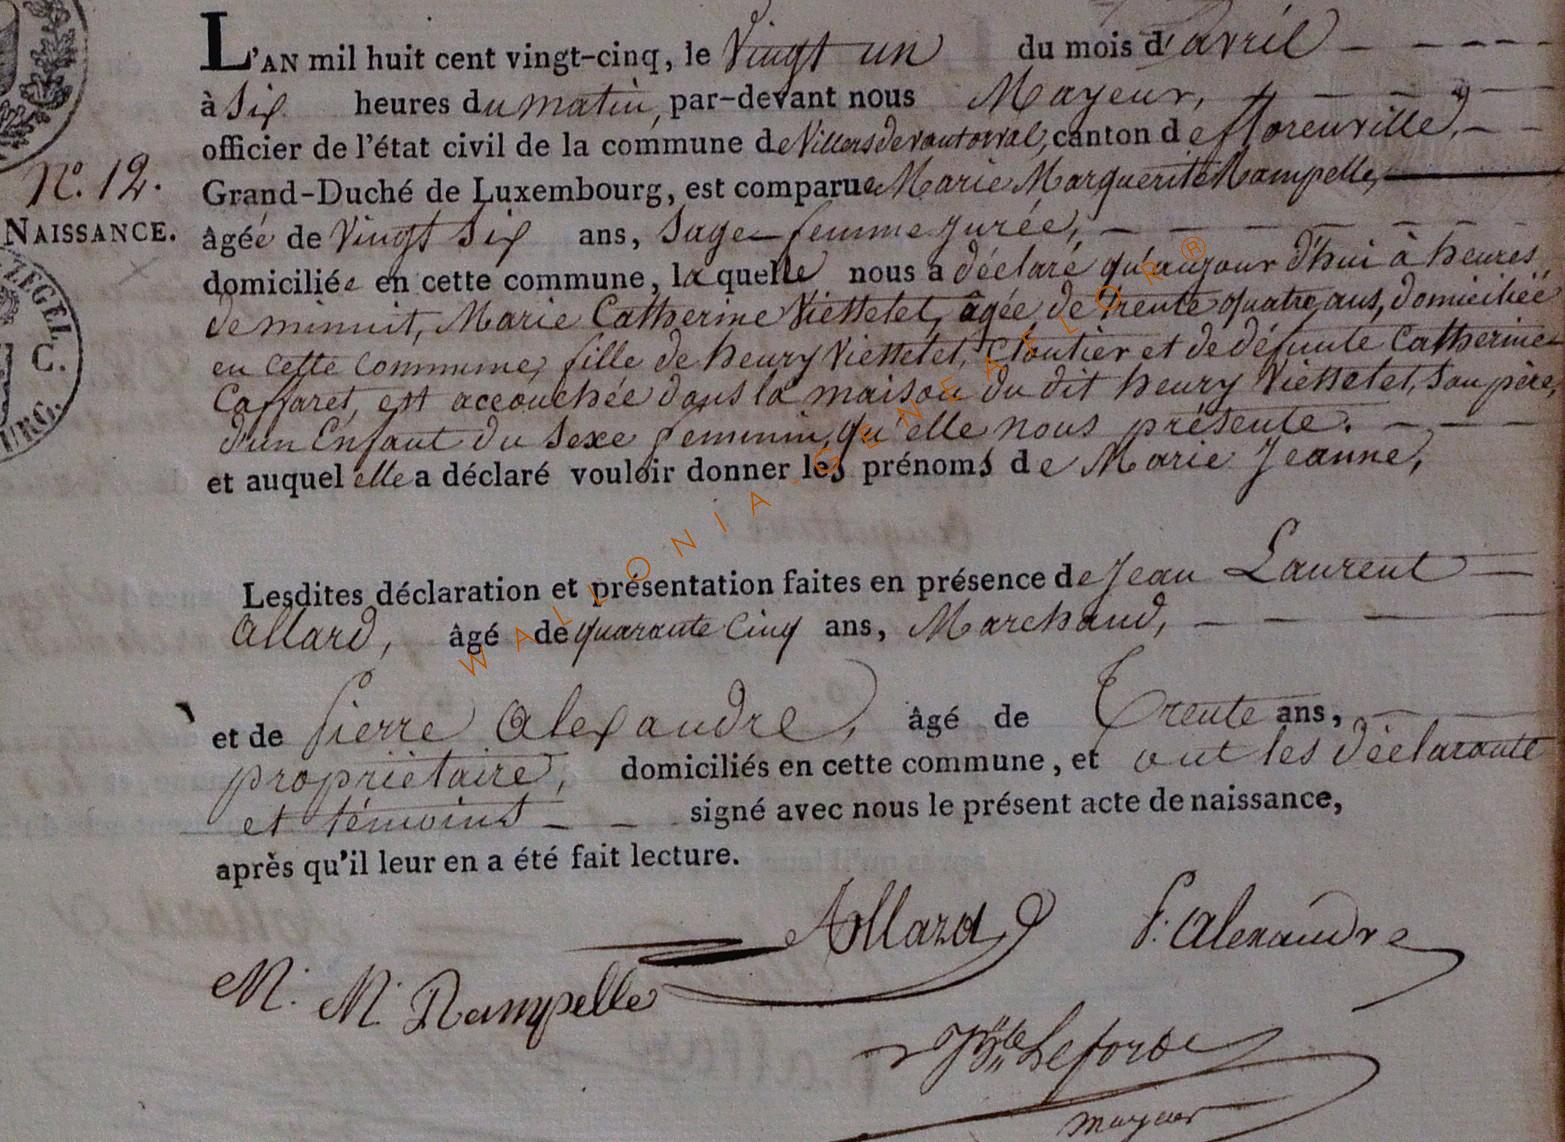 L'AN mil huit cent vingt-cinq, le Vingt un du mois d'avril
à Six heures du matin, par-devant nous Mayeur,
officier de l'état civil de la commune de Villers devant orval, canton de florenville,
N.º 12.
Grand-Duché de Luxembourg, est comparue Marie Marguerite Rampelle,
NAISSANCE.
âgée de Vingt Six ans, Sage-femme jurée,
domiciliée en cette commune, laquelle nous a déclaré qu'aujour d'hui à heures
de minuit, Marie Catherine Viettetet, âgée de trente quatre ans, domiciliée
en cette commune, fille de henry Viettetet, Cloutier et de défunte Catherine
Caffaret, est accouchée dans la maison du dit henry Viettetet, Son père,
d'un Enfant du Sexe feminin, qu'elle nous présente.
et auquel elle a déclaré vouloir donner les prénoms de Marie Jeanne,
Lesdites déclaration et présentation faites en présence de Jean Laurent
Allard, âgé de quarante Cinq ans, Marchand,
et de Pierre Alexandre, âgé de Trente ans,
propriétaire, domiciliés en cette commune, et ont les déclarante
et témoins signé avec nous le présent acte de naissance,
après qu'il leur en a été fait lecture.
Allard P. Alexandre
M. M. Rampelle
Leforte
mayeur
C.
WALLONIA GENEALOR ®